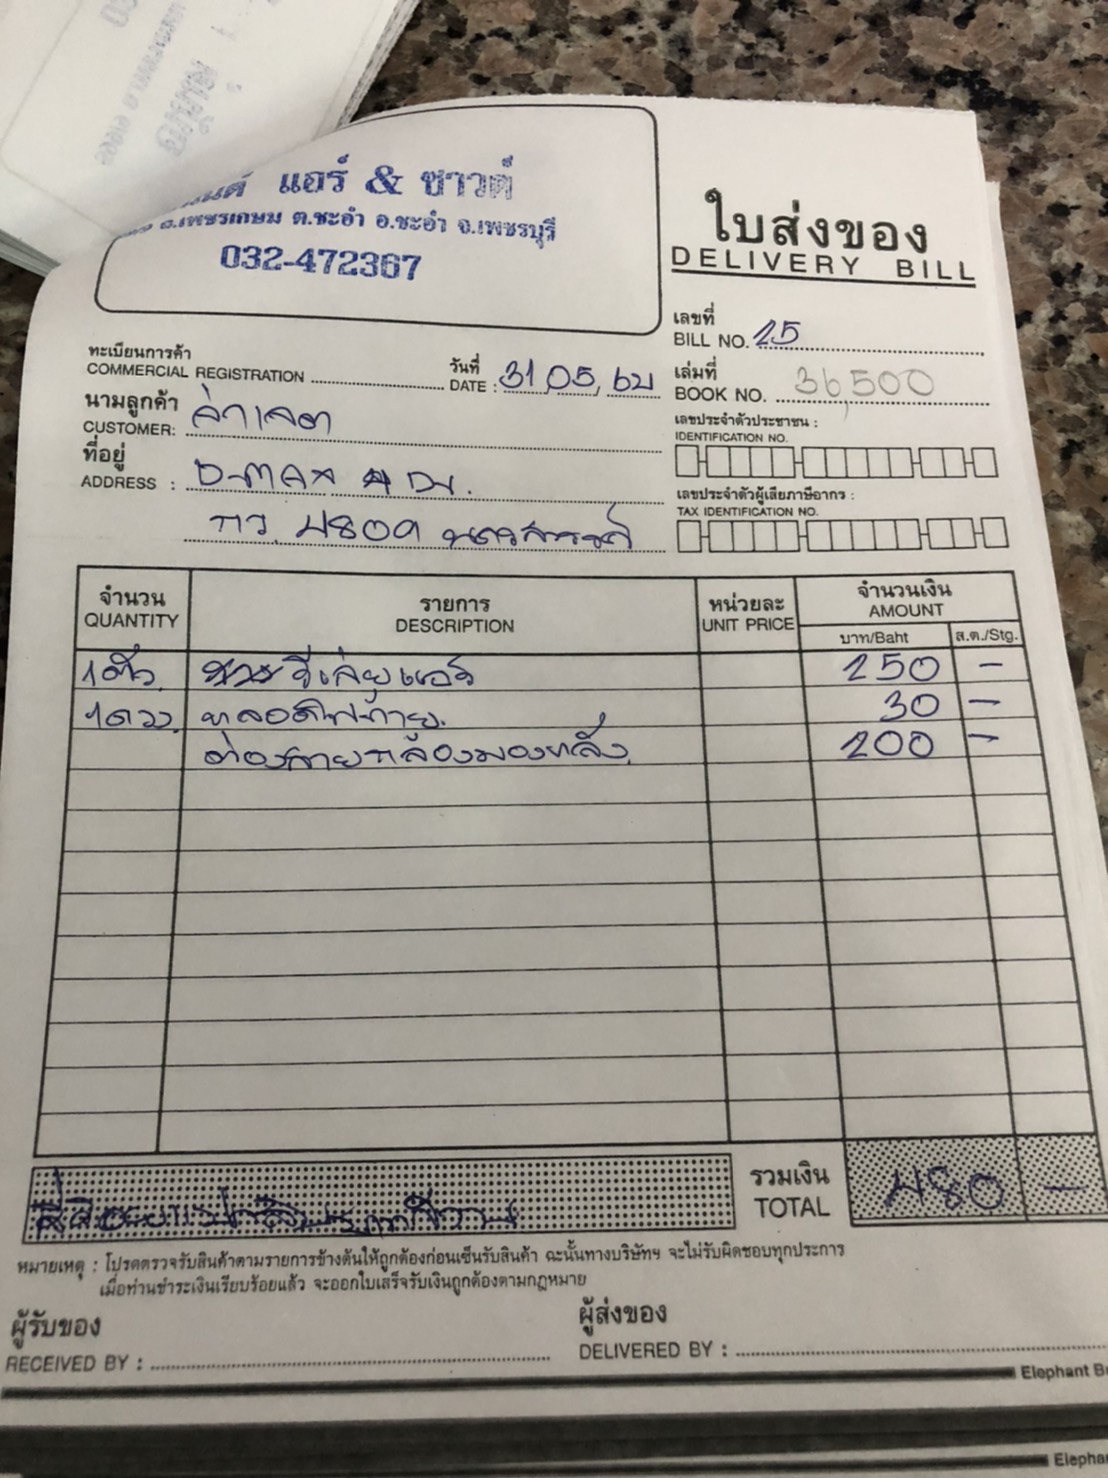 แอร์ & ซาวด์
ถ.เพชรเกษม ต.ชะอำ อ.ชะอำ จ.เพชรบุรี
032-472367
ใบส่งของ
DELIVERY BILL
เลขที่
BILL NO. 25
ทะเบียนการค้า
COMMERCIAL REGISTRATION
วันที่
DATE : 31,05,62
เล่มที่
BOOK NO. 36,500
นามลูกค้า
CUSTOMER:
เลขประจำตัวประชาชน :
IDENTIFICATION NO.
ที่อยู่
ADDRESS : D-MAX 4
เลขประจำตัวผู้เสียภาษีอากร :
TAX IDENTIFICATION NO.
4809 นครสวรรค์
จำนวน
QUANTITY
รายการ
DESCRIPTION
หน่วยละ
UNIT PRICE
จำนวนเงิน
AMOUNT
บาท/Baht
ส.ต./Stg.
1 ตัว รีเลย์แอร์ 250 -
1 ดวง หลอดไฟท้าย 30 -
ต่อสายกล้องมองหลัง 200 -
รวมเงิน
TOTAL
480 -
หมายเหตุ : โปรดตรวจรับสินค้าตามรายการข้างต้นให้ถูกต้องก่อนเซ็นรับสินค้า ฉะนั้นทางบริษัทฯ จะไม่รับผิดชอบทุกประการ
เมื่อท่านชำระเงินเรียบร้อยแล้ว จะออกใบเสร็จรับเงินถูกต้องตามกฎหมาย
ผู้รับของ
RECEIVED BY :
ผู้ส่งของ
DELIVERED BY :
Elephant
Elepha